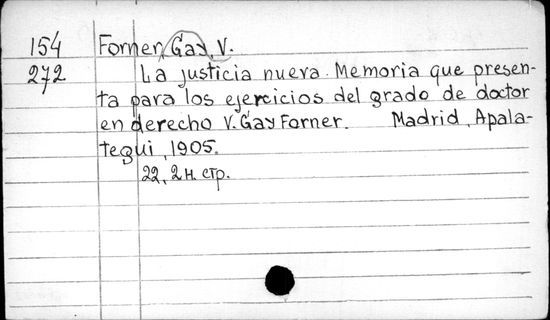 154 Forner, Gay, V.
272 La justicia nueva. Memoria que presen-
ta para los ejercicios del grado de doctor
en derecho V. Gay Forner. Madrid, Apala-
tegui, 1905.
22, 2 н. стр.